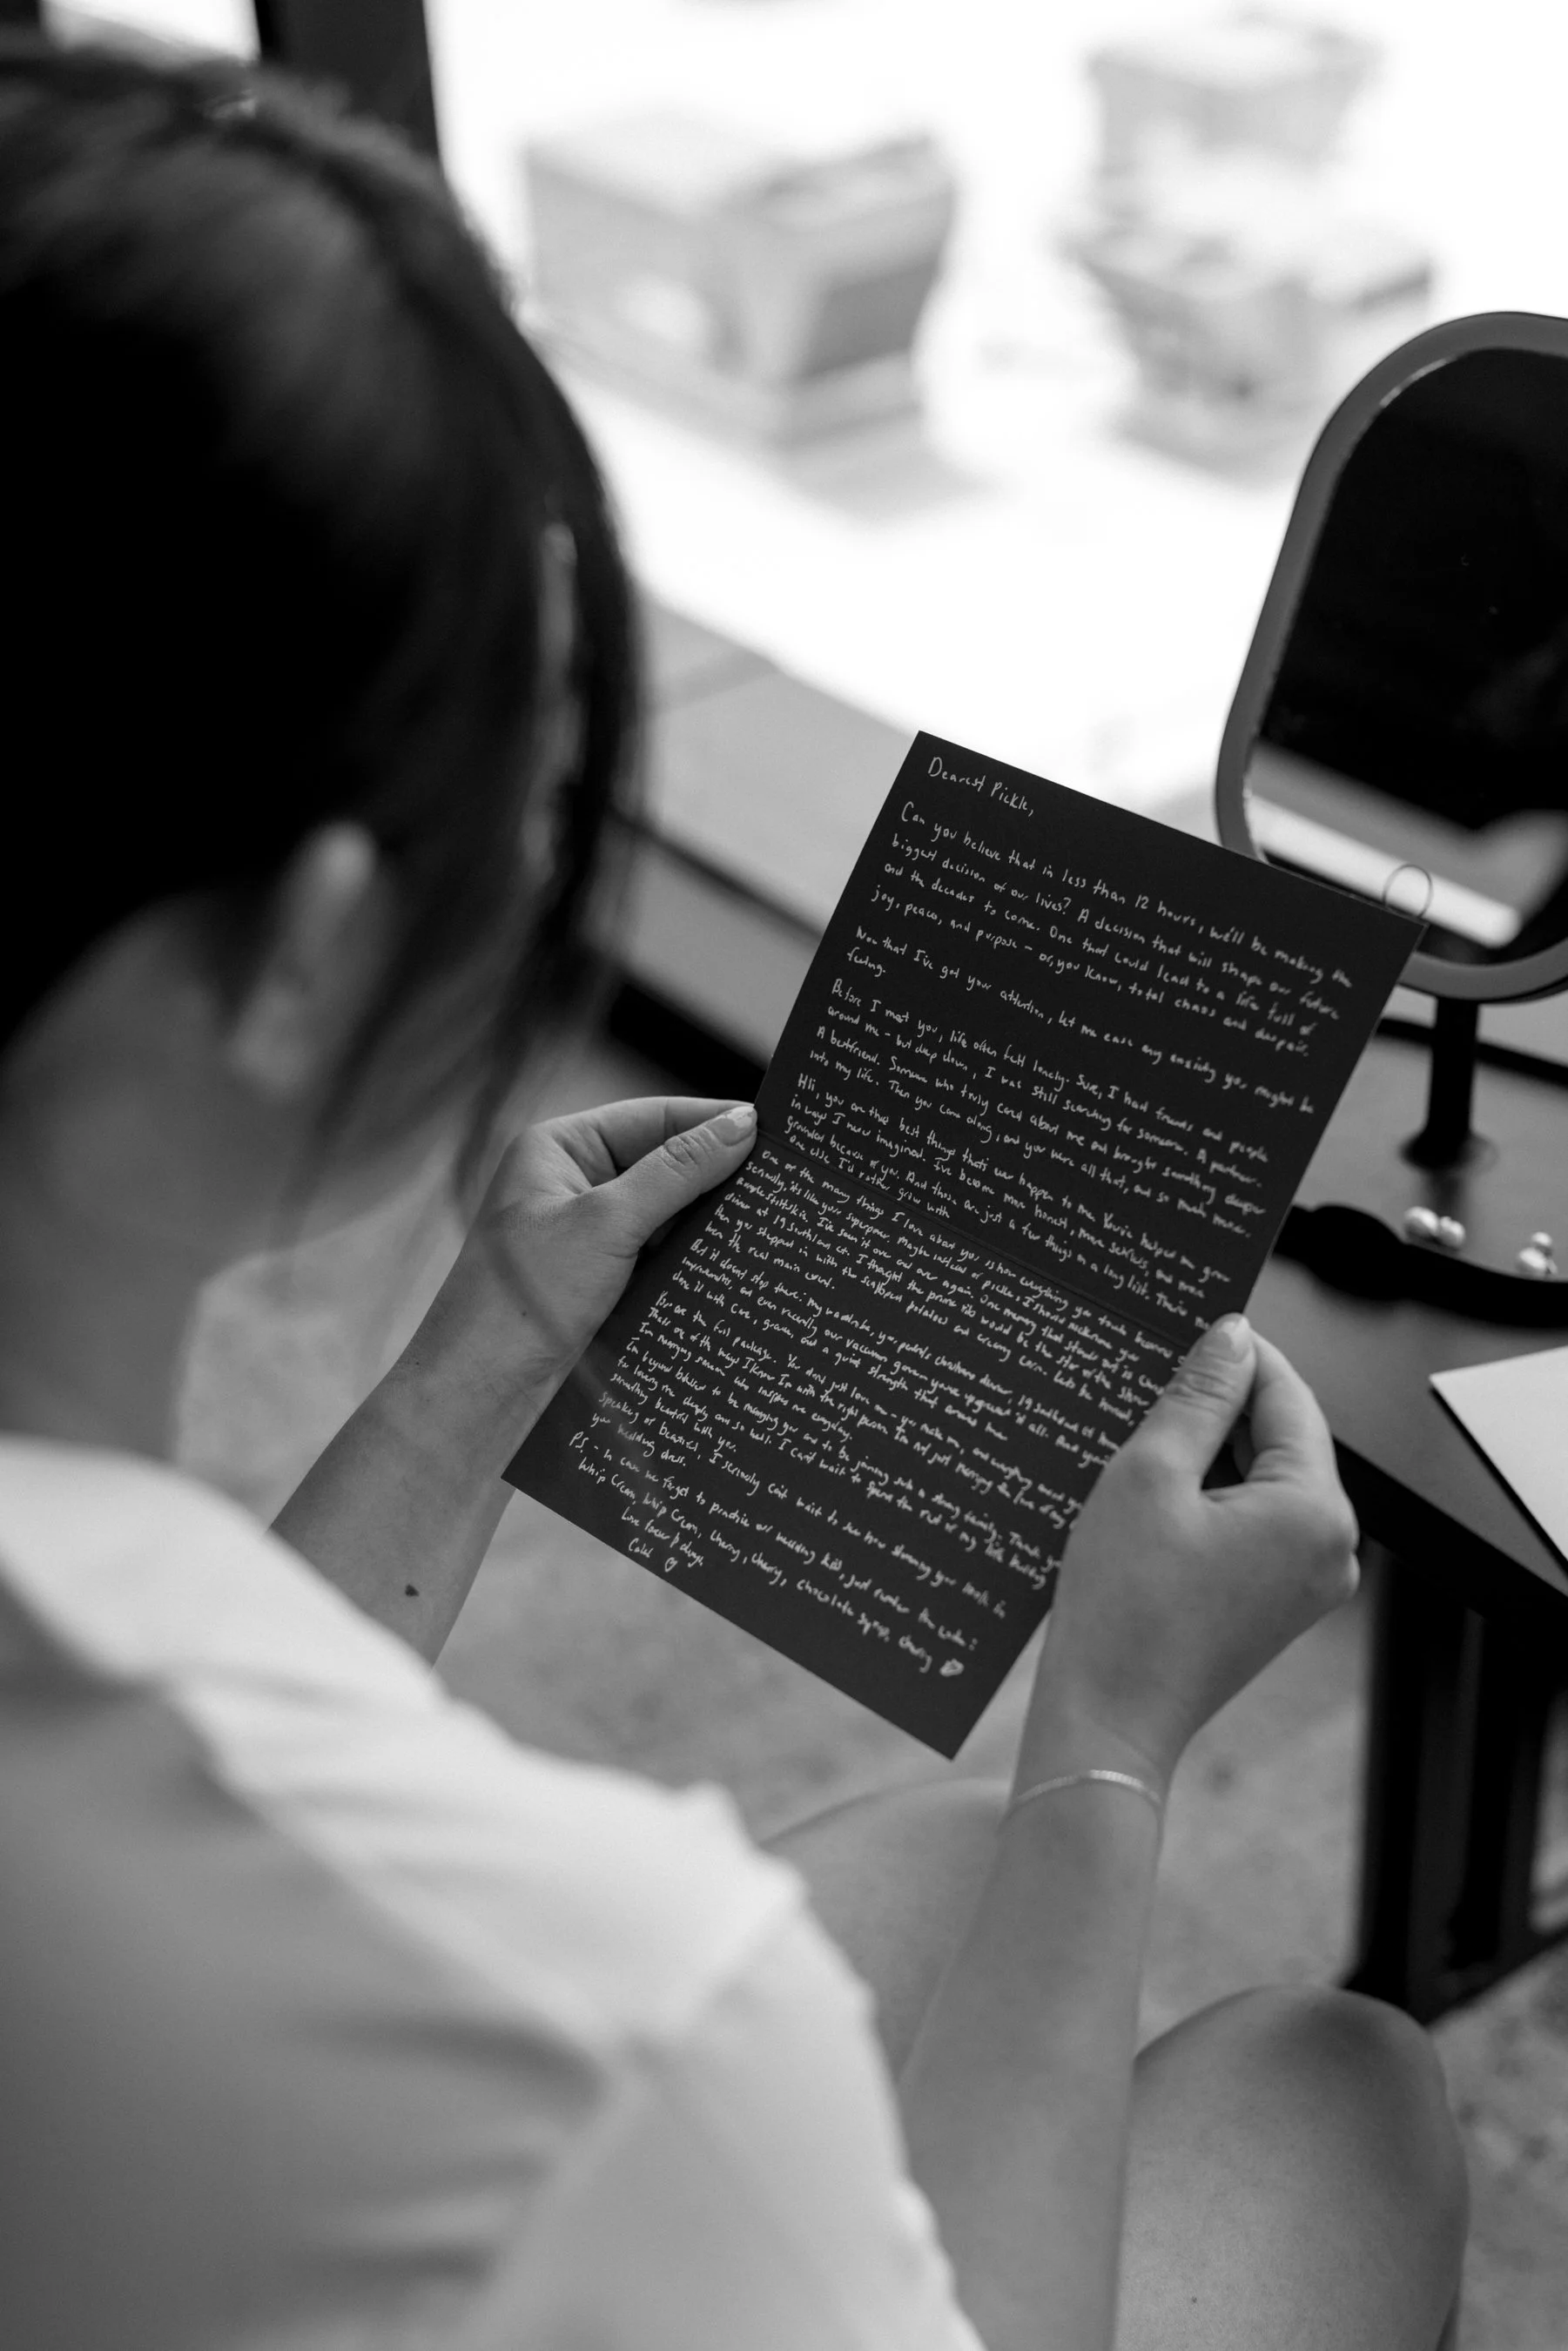 Dearest Pickle,
Can you believe that in less than 12 hours, we'll be making the
biggest decision of our lives? A decision that will shape our future
and the decades to come. One that could lead to a life full of
joy, peace, and purpose - or, you know, total chaos and despair.
Now that I've got your attention, let me ease any anxiety you might be
feeling.
Before I met you, life often felt lonely. Sure, I had friends and people
around me - but deep down, I was still searching for someone. A partner.
A bestfriend. Someone who truly cared about me and brought something deeper
into my life. Then you came along, and you were all that, and so much more.
you are the best things that's ever happen to me. You've helped me grow
in ways I never imagined. I've become more honest, more selfless, and more
grounded because of you. And those are just a few things on a long list. There's no
one else I'd rather grow with
One of the many things I love about you is how everything you touch becomes
seriously, it's like your superpower. Maybe instead of pickle, I should nickname you
I've seen it over and over again. One memory that stands out is
dinner at 19 I thought the prime rib would be the star of the show,
then you stepped in with the scalloped potatoes and creamy corn. Let's be honest,
were the real main event.
But it doesn't stop there: my wardrobe, your christmas dinner, 19
improvements, and even recently our vacuum you've upgraded it all. And you've
done it with care, grace, and a quiet strength that amazes me
You are the full package. You don't just love me - you make me, and everything around you
That's one of the ways I know I'm with the right person. I'm not just marrying the love of my
I'm marrying someone who inspires me everyday.
I'm beyond blessed to be marrying you and to be joining such a strong family. Thank you
for loving me deeply and so well. I can't wait to spend the rest of my life building
something beautiful with you.
Speaking of beautiful, I seriously can't wait to see how stunning you look in
your wedding dress.
P.S. - In case we forget to practice our wedding kiss, just remember the
Whip Cream, Whip Cream, Cherry, Cherry, Chocolate Syrup, Cherry
Love forever & always
Caleb